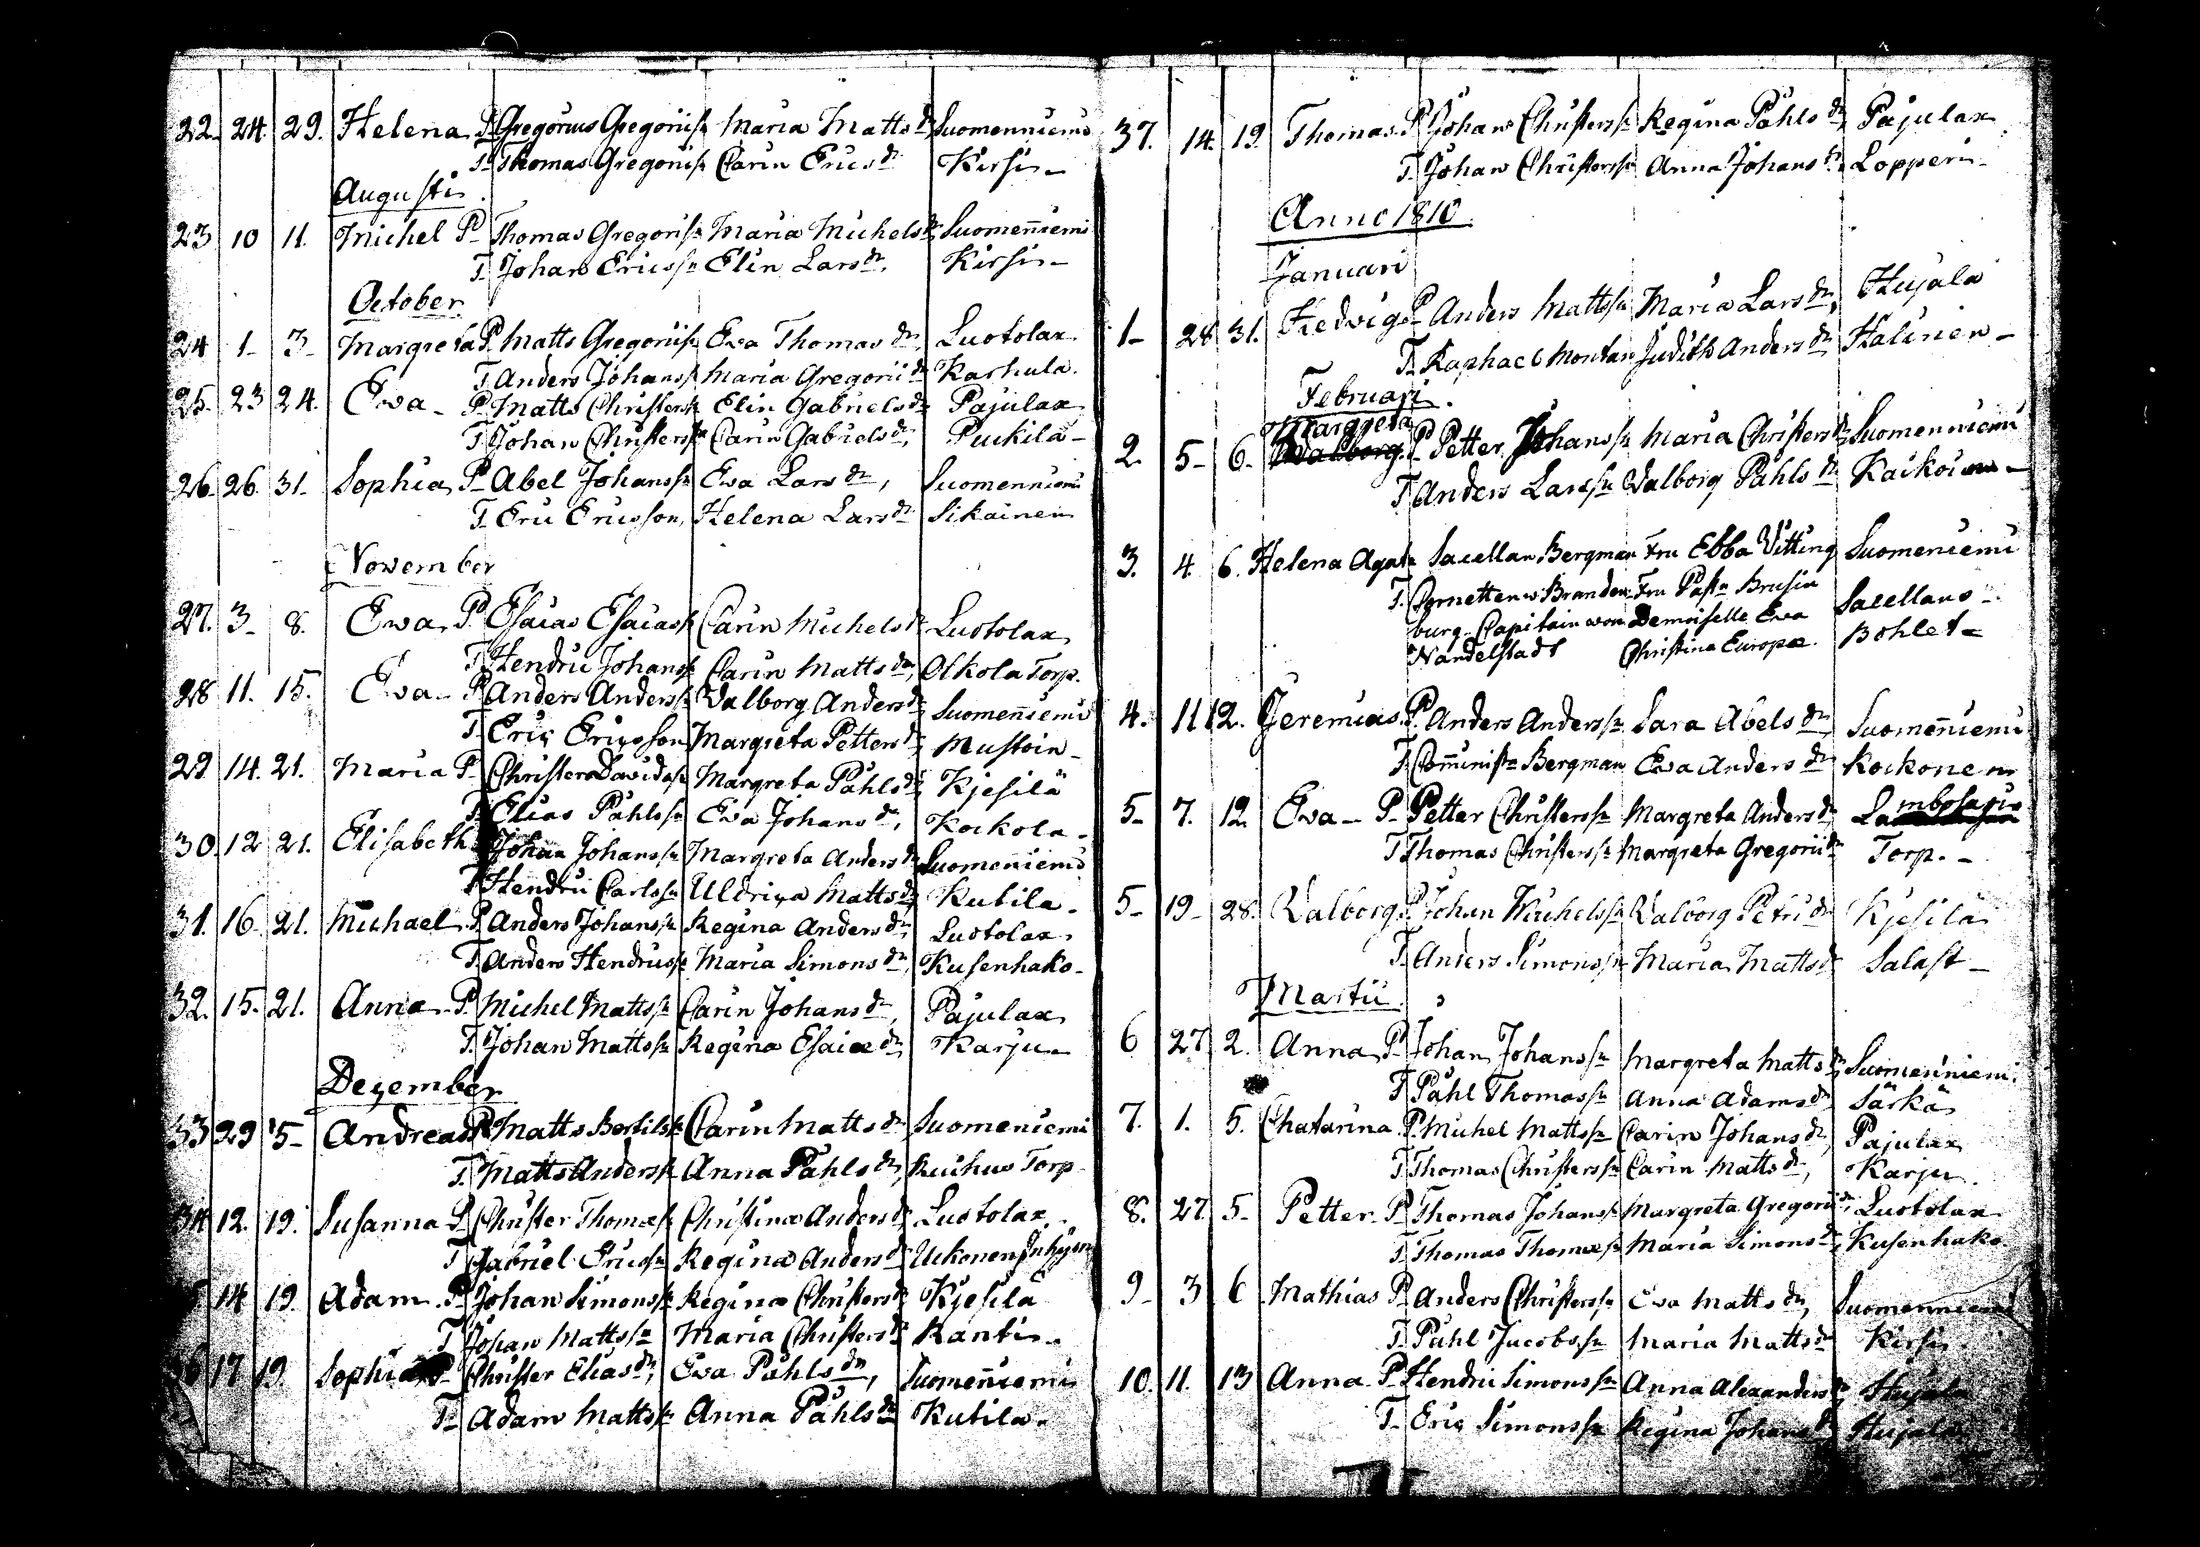 22. 24. 29. Helena P. Gregorius Gregorii sn Maria Matts dr Suomenniemi
T. Thomas Gregorii sn Carin Erics dr Kirsi
Augusti
23 10 11. Michel P. Thomas Gregorii sn Maria Michels dr Suomenniemi
T. Johan Erics sn Elin Lars dr, Kirsi
October
24 1 3 Margreta P. Matts Gregorii sn Eva Thomas dr, Luotolax
T. Anders Johans sn Maria Gregorii dr Karhula.
25. 23 24. Ewa P. Matts Christers sn Elin Gabriels dr Pajulax
T. Johan Christers sn Carin Gabriels dr,
26. 26. 31. Sophia P. Abel Johans sn Eva Lars dr, Suomenniemi
T. Eric Ericsson, Helena Lars dr Sikainen
November
27. 3 8. Ewa P. Esaias Esaias sn Carin Michels dr Luotolax
T. Hendric Johans sn Carin Matts dr, Olkola Torp.
28 11. 15. Ewa P. Anders Anders sn Valborg Anders dr Suomenniemi
T. Eric Ericsson Margreta Petters dr Mustoin
29 14. 21. Maria P. Christer Davids sn Margreta Påhls dr Kjesilä
T. Elias Påhls sn Eva Johans dr, Kockola
30. 12 21. Elisabeth Johan Johans sn Margreta Anders dr Suomenniemi
T. Hendric Carls sn Uldrica Matts dr Kutila
31. 16. 21. Michael P. Anders Johans sn Regina Anders dr Luotolax
T. Anders Hendrics sn Maria Simons dr, Kusenhako
32. 15. 21. Anna P. Michel Matts sn Carin Johans dr, Pajulax
T. Johan Matts sn Regina Esaiæ dr, Karju
Dezember
33 29 5 Andreas P. Matts Bertils sn Carin Matts dr Suomeniemi
T. Matts Anders sn Anna Påhls dr, Torp
34 12. 19. Susanna P. Christer Thomæ sn Christina Anders dr Luotolax
T. Gabriel Erics sn Regina Anders dr Ukonen
14 19. Adam P. Johan Simons sn Regina Christers dr Kjesilä
T. Johan Matts sn Maria Christers dr Kanti
36 17 19. Sophia P. Christer Elias dr, Eva Påhls dr, Suomenniemi
T. Adam Matts sn Anna Påhls dr Kutila.
37. 14. 19. Thomas P. Johan Christers sn Regina Påhls dr, Pajulax
T. Johan Christers sn Anna Johans dr, Lopperi
Anno 1810.
Januari
1 28 31. Hedvig P. Anders Matts sn Maria Lars dr, Hujala
T. Raphael Montan Judith Anders dr Halinen
Februari.
Margreta
2. 5 6. Walborg P. Petter Johans sn Maria Christers dr Suomenniemi
T. Anders Lars sn Valborg Påhls dr
3. 4 6. Helena Agata Sacellan Bergman Fru Ebba Vitting Suomeniemi
T. Cornetten v. Branden Fru Past. Brusin Sacellans
burg. Capitain von Demoiselle Eva Bohlet
Nandelstadt Christina Europæ.
4. 11 12. Jeremias P. Anders Anders sn Sara Abels dr Suomenniemi
T. Comminist. Bergman Eva Anders dr Kockonen
5 7. 12. Eva P. Petter Christers sn Margreta Anders dr
T. Thomas Christers sn Margreta Gregorii dr Torp.
5 19 28. Valborg P. Johan Michels sn Valborg Petri dr Kjesilä
T. Anders Simons sn Maria Matts dr Salast
Martii.
6 27 2. Anna P. Johan Johans sn Margreta Matts dr, Suomenniemi
T. Påhl Thomas sn Anna Adams dr Särkä
7. 1. 5. Chatarina P. Michel Matts sn Carin Johans dr Pajulax
T. Thomas Christers sn Carin Matts dr, Karju.
8. 27 5 Petter P. Thomas Johans sn Margreta Gregorii dr, Luotolax
T. Thomas Thomæ sn Maria Simons dr, Kusenhako
9 3 6 Mathias P. Anders Christers sn Eva Matts dr, Suomenniemi
T. Påhl Jacobs sn Maria Matts dr Kirsi.
10. 11. 13 Anna P. Hendric Simons sn Anna Alexanders dr Hujala
T. Eric Simons sn Regina Johans dr Hujala